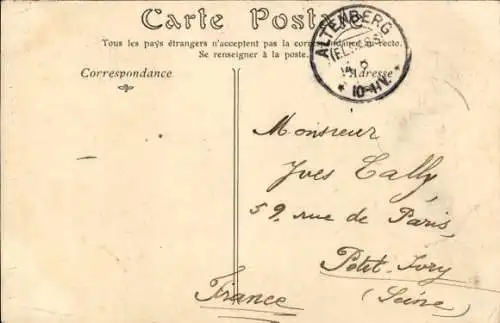 Carte Postale
Tous les pays étrangers n'acceptent pas la correspondance au recto.
Se renseigner à la poste.
ALTENBERG
10-11V.
Correspondance
Adresse
Monsieur
Yves Tally,
59, rue de Paris,
Petit-Ivry
(Seine)
France